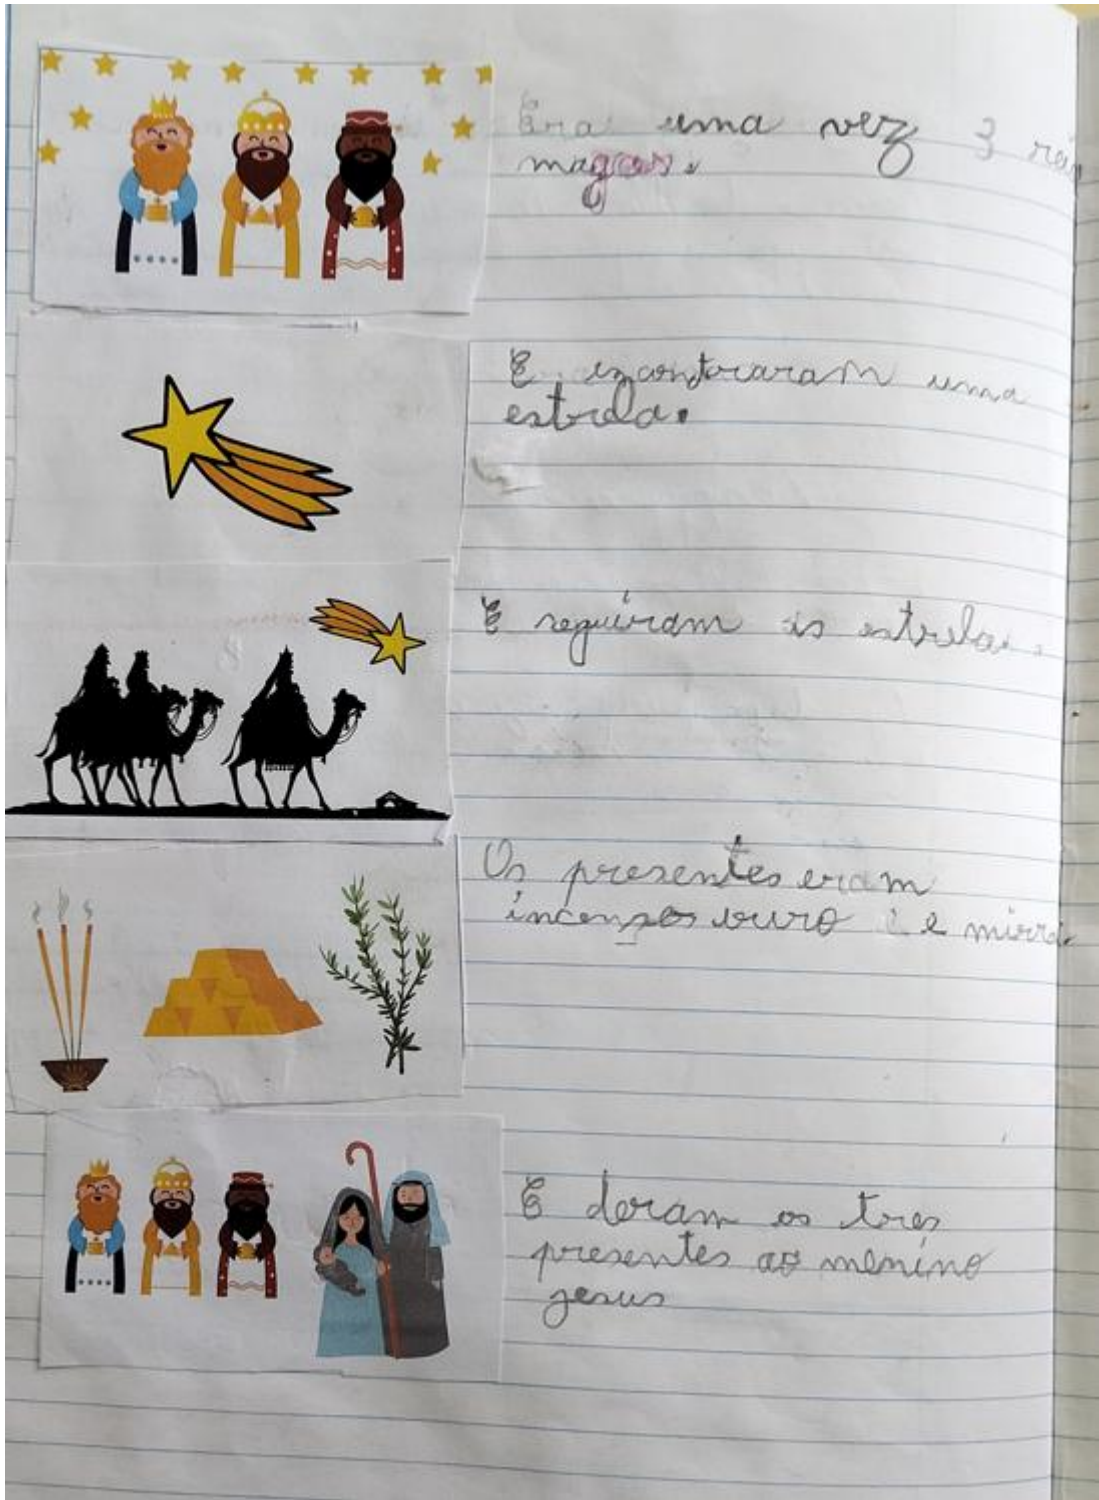 Era uma vez 3 reis
magos.
E encontraram uma
estrela.
E seguiram as estrela.
Os presentes eram
incenzos ouro e mirra
E deram os tres
presentes ao menino
jesus